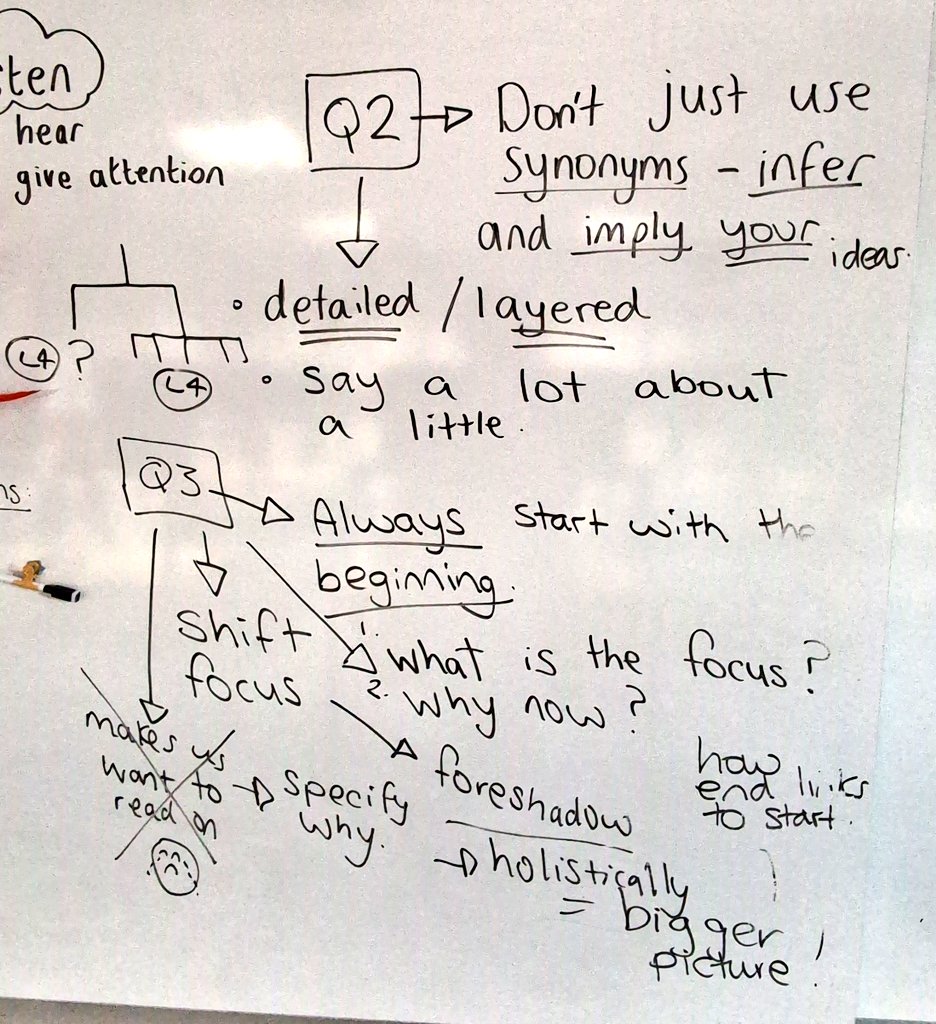 ten
hear
give attention
Q2
Don't just use
synonyms - infer
and imply your ideas.
• detailed / layered
L4 ?
L4
• say a lot about
a little.
Q3
ns:
Always start with the
beginning.
shift
focus
1. what is the focus?
2. why now?
makes us
want to
read on
specify
why.
foreshadow
how
end links
to start.
holistically
= bigger
picture!